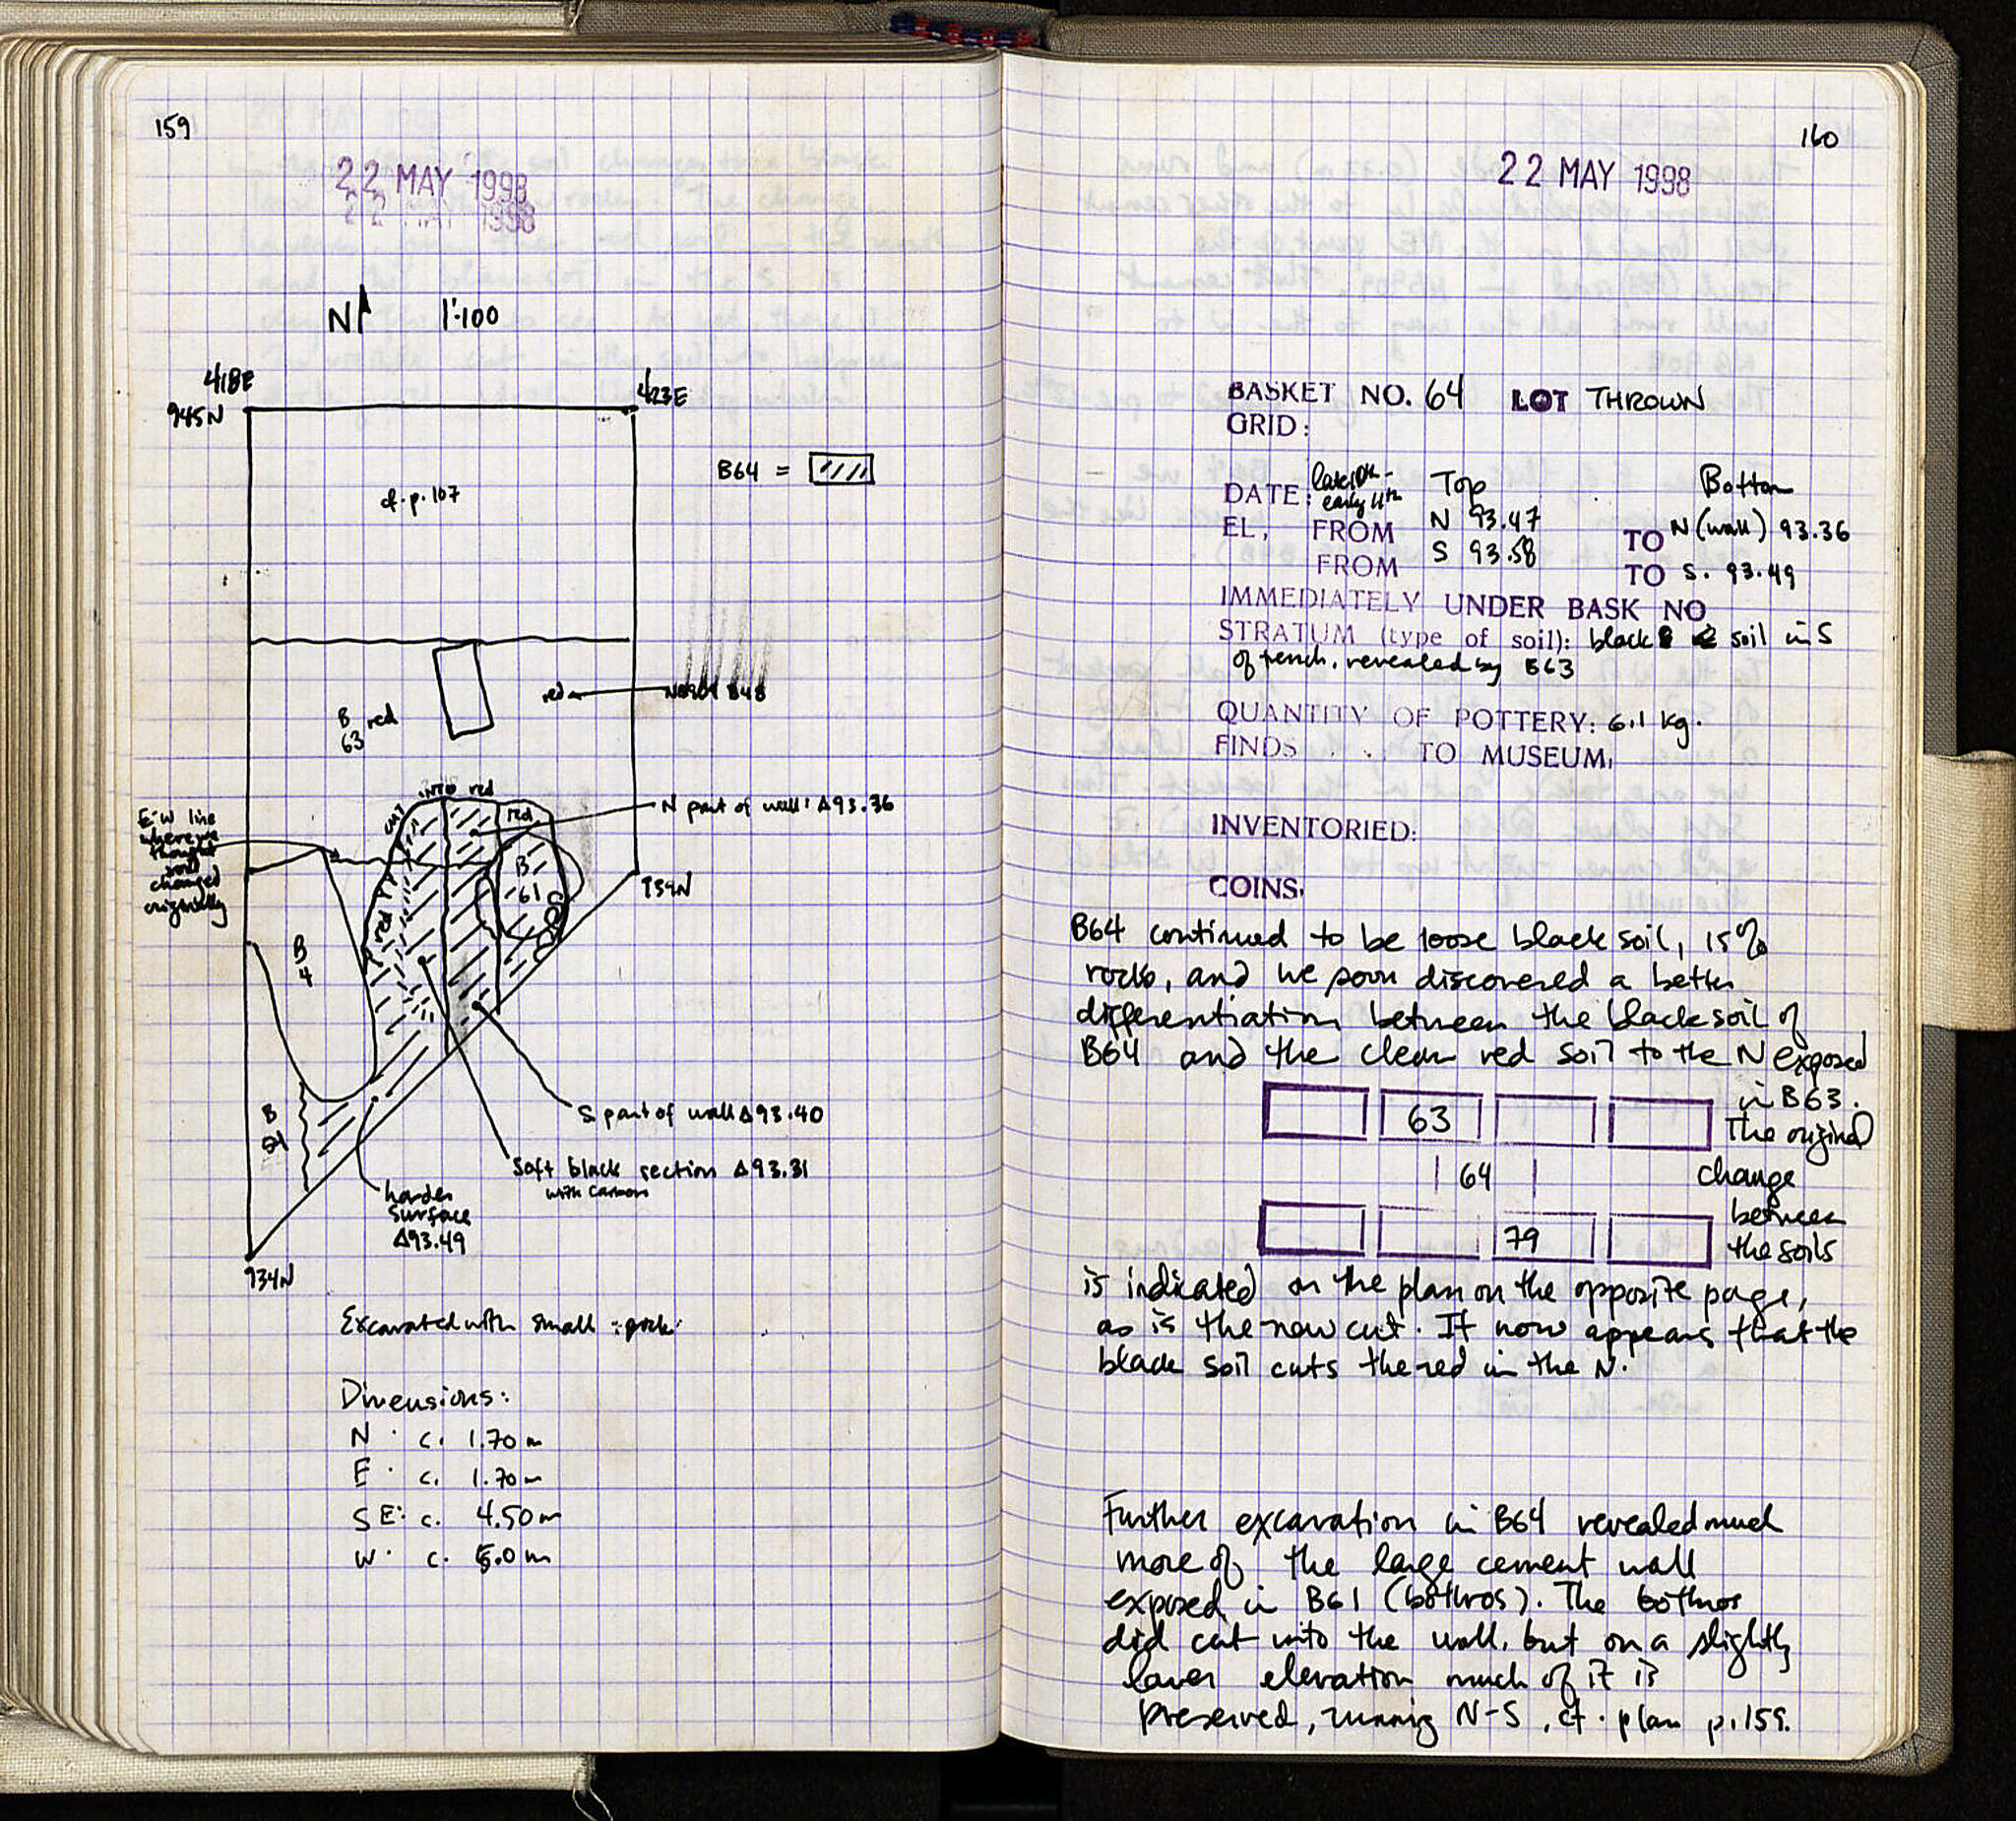 159
22 MAY 1998
22 MAY 1998
N 1:100
418E
423E
945N
B64 =
cf. p. 107
red
B48
B red
63
red
red
N part of wall: Δ93.36
E-W line
where we
thought
soil
changed
originally
cut
red
B
61
939N
B
4
B
S part of wall Δ93.40
Soft black section Δ93.31
with carbon
harder
surface
Δ93.49
934N
Excavated with small pick
Dimensions:
N : c. 1.70 m
E : c. 1.70 m
SE: c. 4.50 m
W : c. 5.0 m
160
22 MAY 1998
BASKET NO. 64 LOT THROWN
GRID:
DATE: late 10th - early 11th Top Bottom
EL. FROM N 93.47 TO N (wall) 93.36
FROM S 93.58 TO S. 93.49
IMMEDIATELY UNDER BASK NO
STRATUM (type of soil): black soil in S
of trench, revealed by B63
QUANTITY OF POTTERY: 6.1 kg.
FINDS TO MUSEUM.
INVENTORIED:
COINS.
B64 continued to be loose black soil, 15%
rocks, and we soon discovered a better
differentiation between the black soil of
B64 and the clean red soil to the N exposed
in B63.
63
The original
64
change
between
79
the soils
is indicated on the plan on the opposite page,
as is the new cut. It now appears that the
black soil cuts the red in the N.
Further excavation in B64 revealed much
more of the large cement wall
exposed in B61 (bothros). The bothros
did cut into the wall, but on a slightly
lower elevation much of it is
preserved, running N-S, cf. plan p. 159.